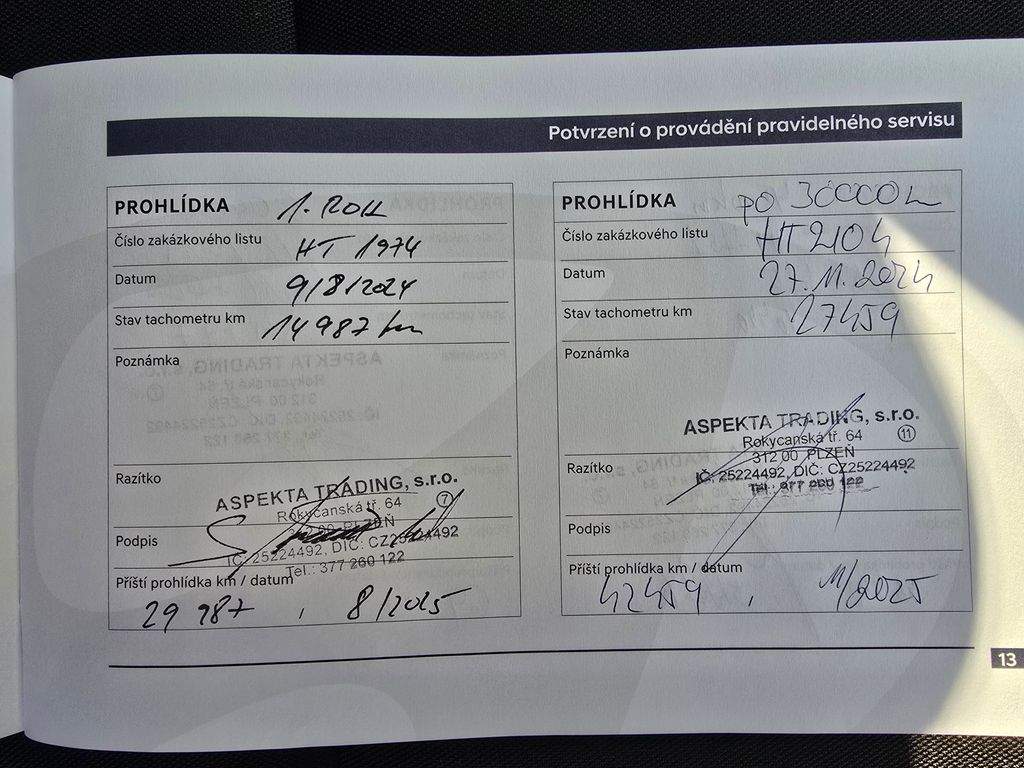 Potvrzení o provádění pravidelného servisu
PROHLÍDKA 1. ROK
Číslo zakázkového listu HT 1974
Datum 9/8/2024
Stav tachometru km 14 987 km
Poznámka
Razítko
ASPEKTA TRADING, s.r.o.
Rokycanská tř. 64
7
312 00 PLZEŇ
Podpis
IČ: 25224492, DIČ: CZ25224492
Tel.: 377 260 122
Příští prohlídka km / datum
29 987 , 8/2025
PROHLÍDKA po 30000km
Číslo zakázkového listu HT 2104
Datum 27.11.2024
Stav tachometru km 27459
Poznámka
ASPEKTA TRADING, s.r.o.
Rokycanská tř. 64
11
312 00 PLZEŇ
Razítko
IČ: 25224492, DIČ: CZ25224492
Tel.: 377 260 122
Podpis
Příští prohlídka km / datum
42459 , 11/2025
13